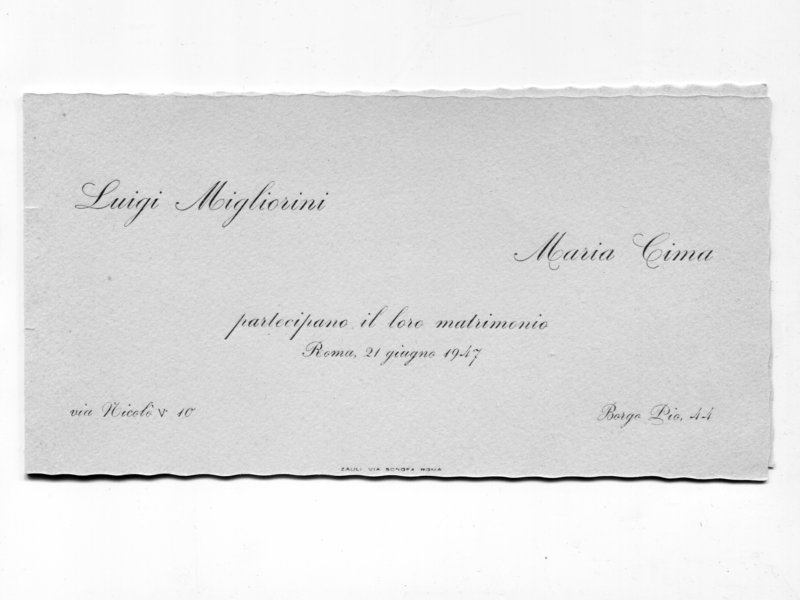 Luigi Migliorini
Maria Cima
partecipano il loro matrimonio
Roma, 21 giugno 1947
via Nicolò V 10
Borgo Pio, 44
ZAULI VIA ROMA